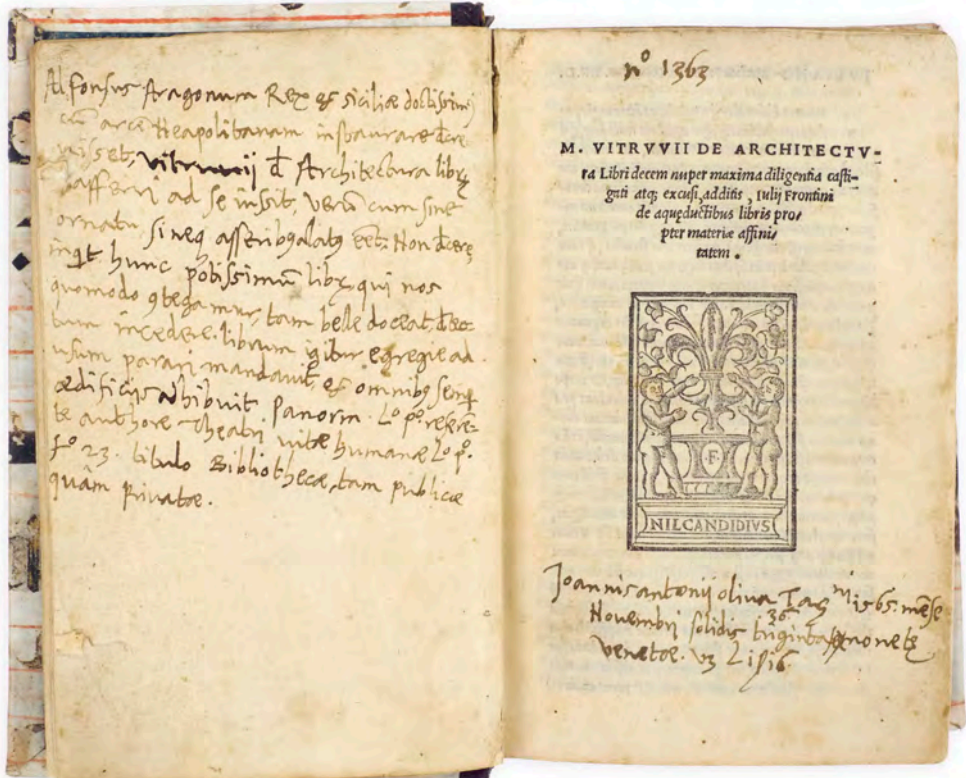 Alfonsus Aragonum Rex et siciliæ doctissimus
cū arcē Neapolitanam instaurare d̄cre
uisset, Vitruuij d̄ Architectura librū
afferri ad se iussit, Verū cum sine
ornatu, sineq asseribꝰ
inqt hunc potissimū librū, qui nos
quomodo ꝯtegamur, tam belle doceat,
tum incedere. librum igitur egregie ad
usum parari mandauit, et omnibꝰ semp
ædificijs Adhibuit. Panorm. Lº pº. referē=
te authore Theatri uitæ humanæ Lº pº.
fº 23. titulo Bibliothecæ, tam publicæ
quâm Priuatæ.
nº 1363
M. VITRVVII DE ARCHITECTV-
ra Libri decem nuper maxima diligentia casti-
gati atq; excusi, additis, Iulij Frontini
de aquęductibus libris pro/
pter materiæ affini/
tatem.
F
NIL CANDIDIVS
Joannis antonij oliua 1565. mēse
Nouembrj solidis triginta monetę
36
venetæ. vz